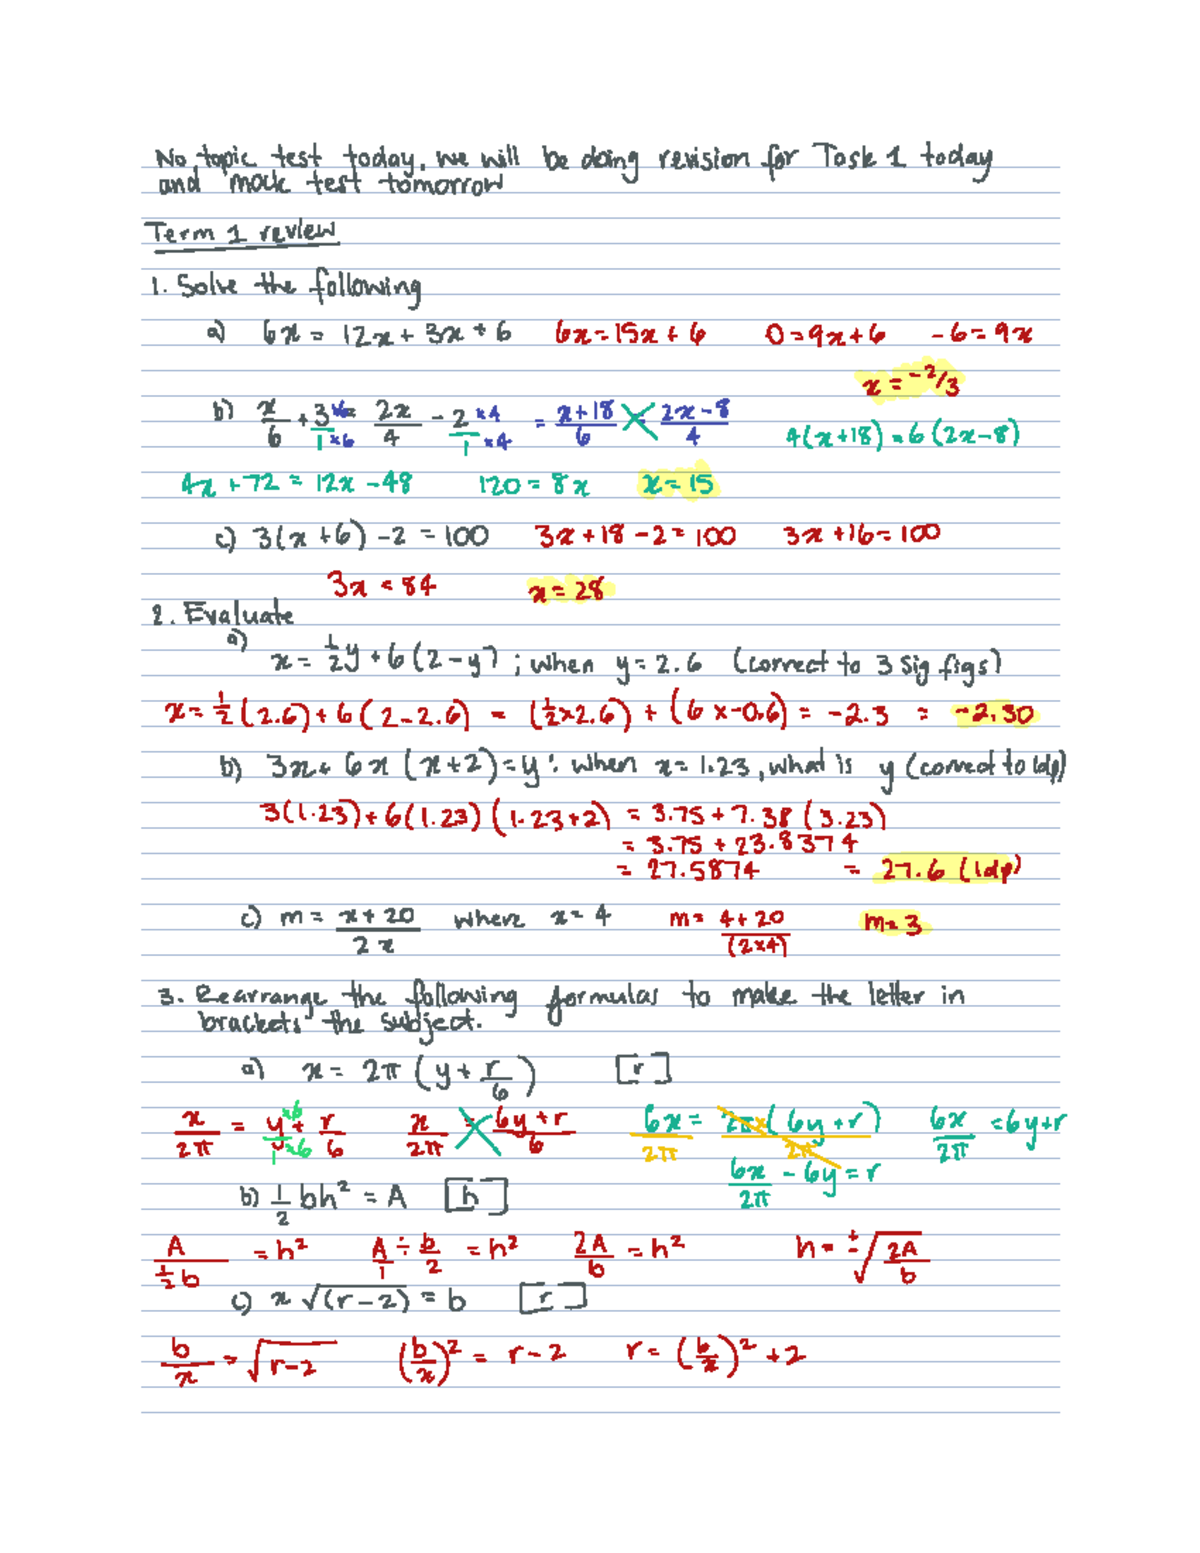 No topic test today, we will be doing revision for Task 1 today
and mock test tomorrow
Term 1 review
1. Solve the following
a) 6x = 12x + 3x + 6   6x = 15x + 6   0 = 9x + 6   -6 = 9x
x = -2/3
b) x/6 + 3/1 ×6/×6 = 2x/4 - 2/1 ×4/×4 = x+18/6 = 2x-8/4   4(x+18) = 6(2x-8)
4x + 72 = 12x - 48   120 = 8x   x = 15
c) 3(x+6) - 2 = 100   3x + 18 - 2 = 100   3x + 16 = 100
3x = 84   x = 28
2. Evaluate
a) x = 1/2 y + 6(2-y) ; when y = 2.6 (correct to 3 sig figs)
x = 1/2(2.6) + 6(2-2.6) = (1/2×2.6) + (6×-0.6) = -2.3 = -2.30
b) 3x + 6x(x+2) = y : when x = 1.23, what is y (correct to 1dp)
3(1.23) + 6(1.23)(1.23+2) = 3.75 + 7.38(3.23)
= 3.75 + 23.8374
= 27.5874 = 27.6 (1dp)
c) m = x+20/2x where x = 4   m = 4+20/(2×4)   m = 3
3. Rearrange the following formulas to make the letter in
brackets the subject.
a) x = 2π(y + r/6)   [r]
x/2π = y/1 ×6/×6 + r/6   x/2π = 6y+r/6   6x/2π = 2π×(6y+r)/2π   6x/2π = 6y+r
6x/2π - 6y = r
b) 1/2 bh² = A   [h]
A/½b = h²   A/1 ÷ b/2 = h²   2A/b = h²   h = ±√2A/b
c) x√(r-2) = b   [r]
b/x = √r-2   (b/x)² = r-2   r = (b/x)² + 2